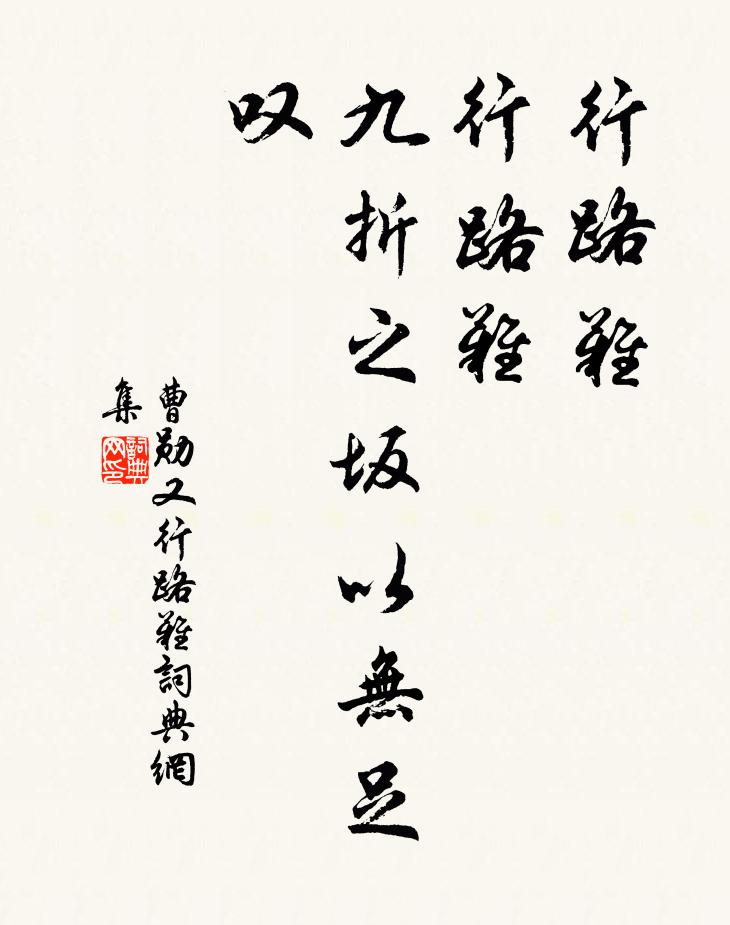 行路難
行路難
九折之坂以無足
叹
曹勛又行路難詞典網
集
詞典
网印